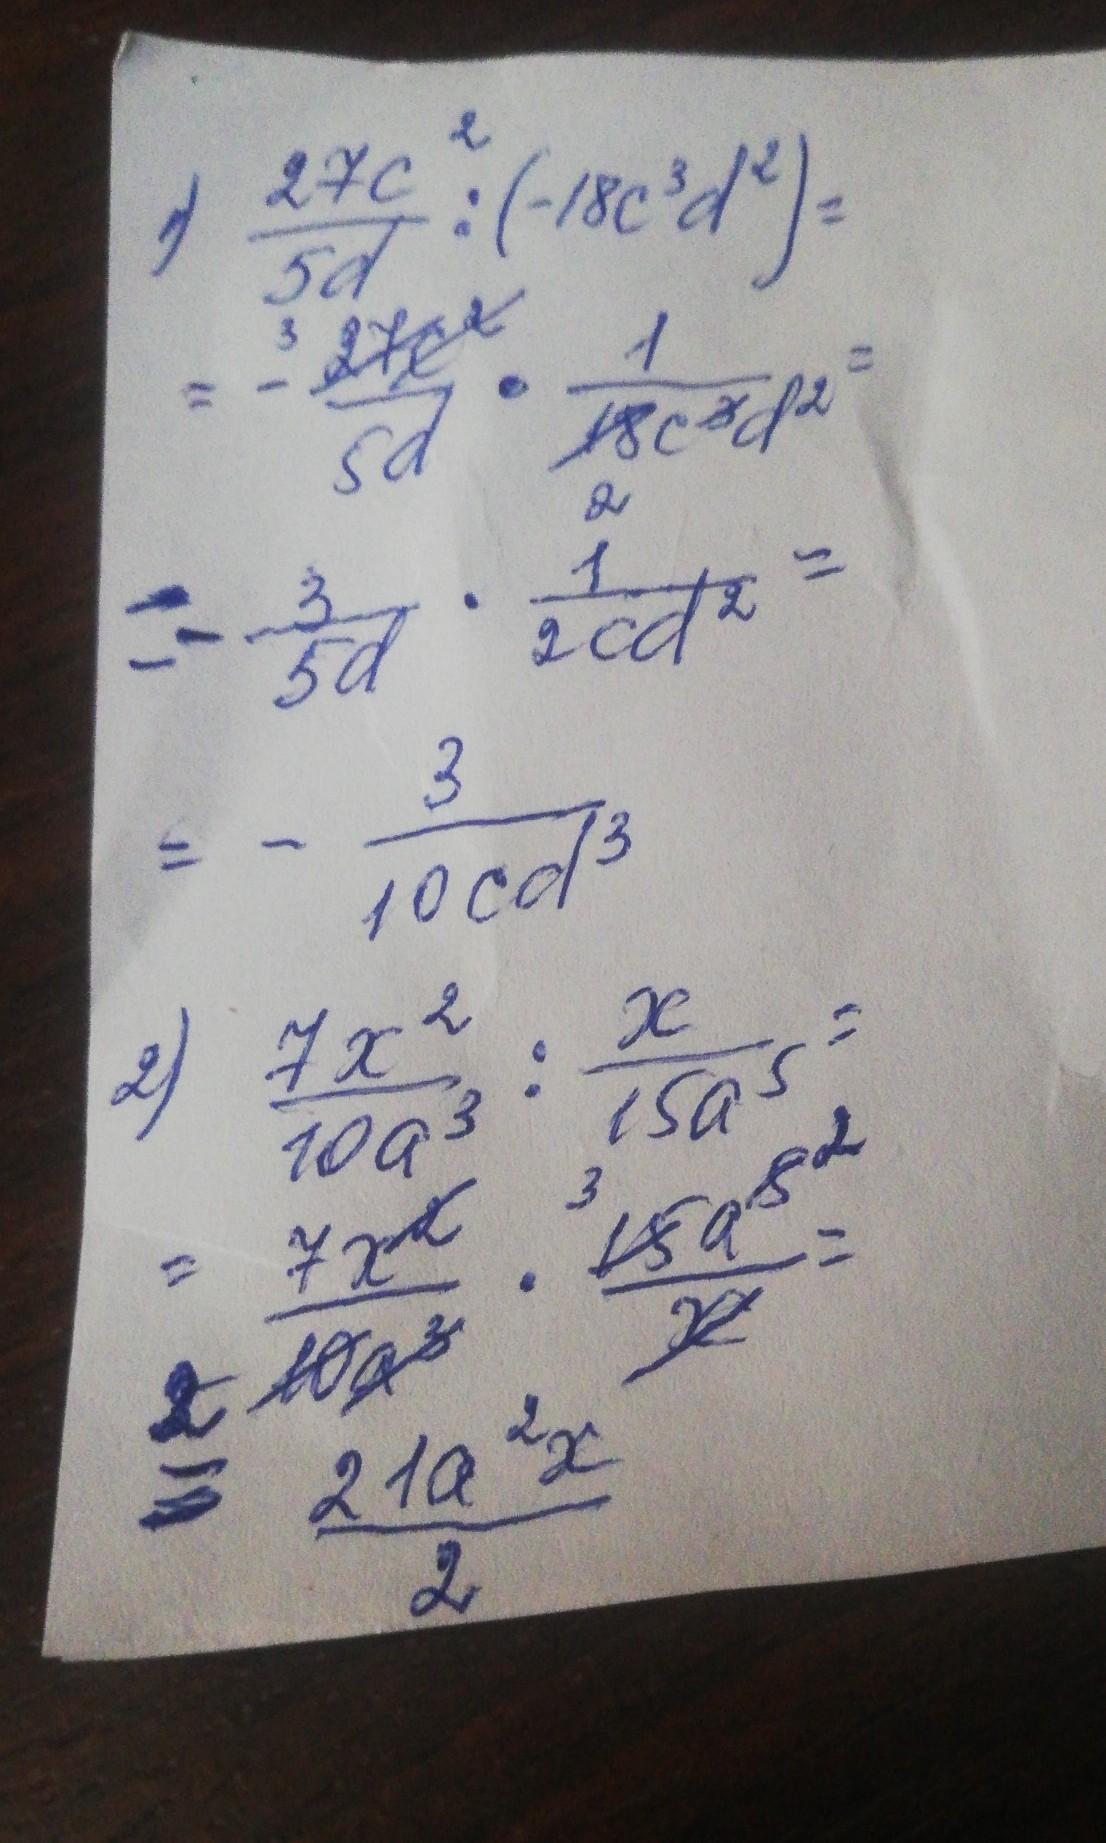 1) 27c²/5d : (-18c³d²) =
= - ³ 27c²/5d · 1/18c³d² =
2
= - 3/5d · 1/2cd² =
= - 3/10cd³
2) 7x²/10a³ : x/15a⁵ =
= 7x²/10a³ · ³ 15a⁵ ²/x =
2
= 21a²x/2